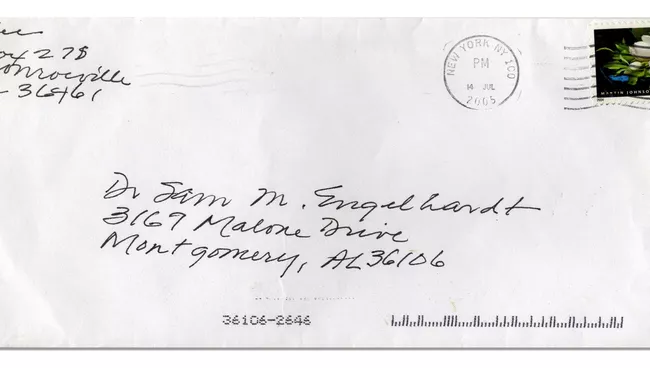 ox 278
onroeville
36461
NEW YORK NY 100
PM
14 JUL
2005
MARTIN JOHNSON
Dr Sam M. Engelhardt
3167 Malone Drive
Montgomery, AL 36106
36106-2646